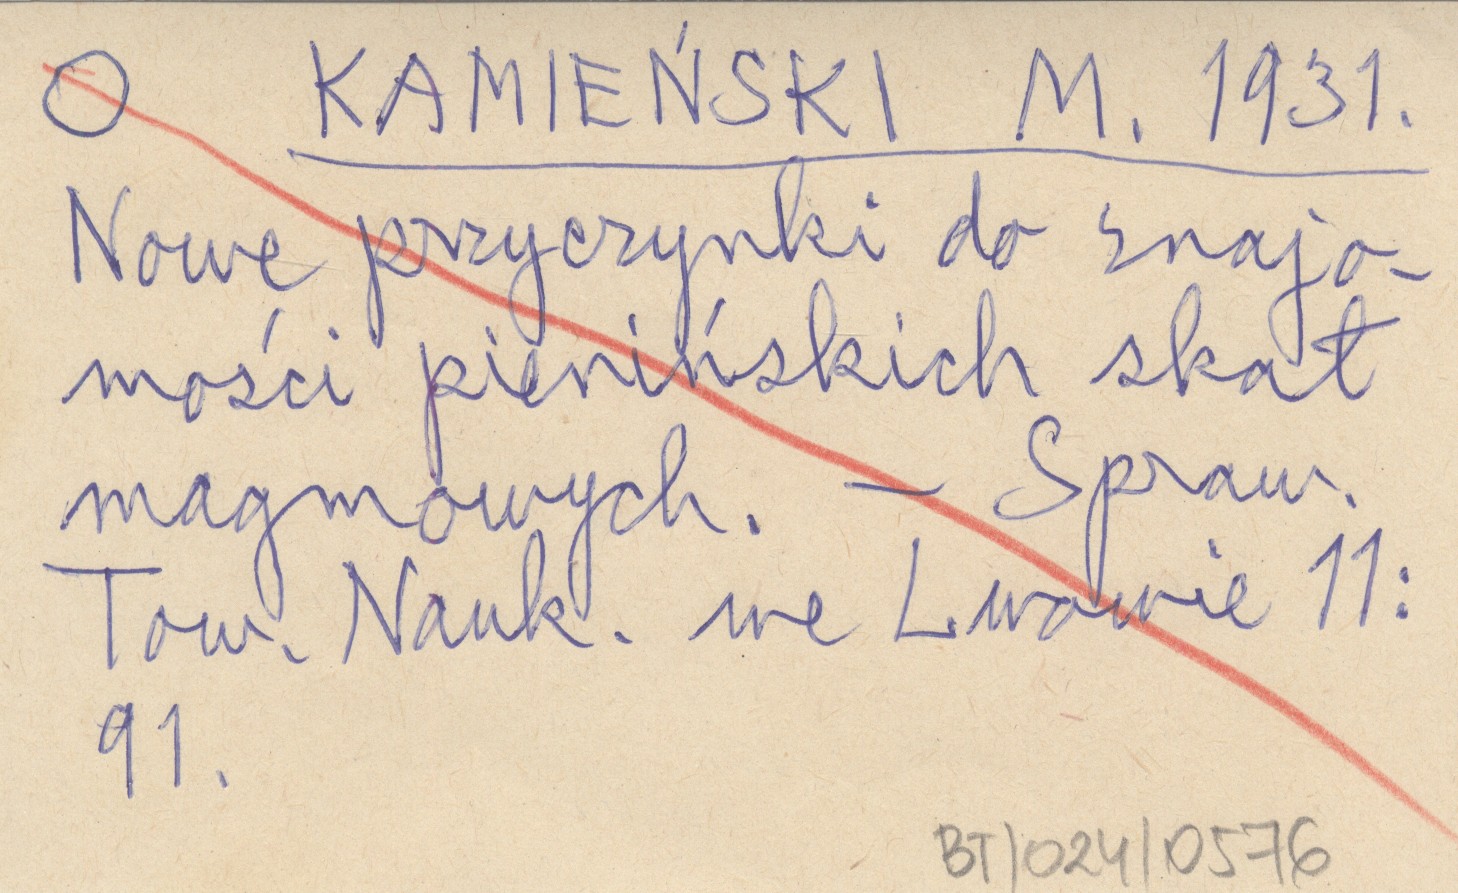 O KAMIEŃSKI M. 1931.
Nowe przyczynki do znajo-
mości pienińskich skał
magmowych. – Spraw.
Tow. Nauk. we Lwowie 11:
91.
BT/024/0576